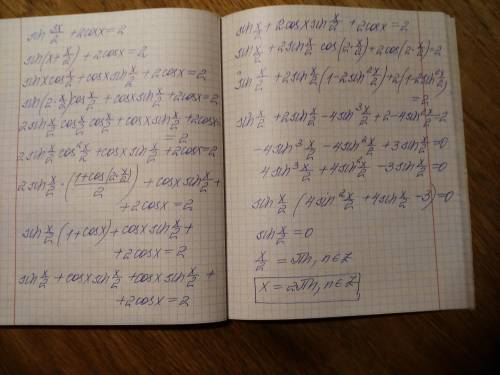 sin 3x/2 + 2cosx = 2
sin(x + x/2) + 2cosx = 2
sinx cos x/2 + cosx sin x/2 + 2cosx = 2
sin(2·x/2)cos x/2 + cosx sin x/2 + 2cosx = 2
2sin x/2 cos x/2 cos x/2 + cosx sin x/2 + 2cosx
= 2
2sin x/2 cos² x/2 + cosx sin x/2 + 2cosx = 2
2sin x/2 · ((1+cos(2·x/2))/2) + cosx sin x/2 +
+ 2cosx = 2
sin x/2 (1+cosx) + cosx sin x/2 +
+ 2cosx = 2
sin x/2 + cosx sin x/2 + cosx sin x/2 +
+ 2cosx = 2
sin x/2 + 2cosx sin x/2 + 2cosx = 2
sin x/2 + 2sin x/2 cos(2·x/2) + 2cos(2·x/2) = 2
sin x/2 + 2sin x/2 (1-2sin² x/2) + 2(1-2sin² x/2)
= 2
sin x/2 + 2sin x/2 - 4sin³ x/2 + 2 - 4sin² x/2 = 2
-4sin³ x/2 - 4sin² x/2 + 3sin x/2 = 0
4sin³ x/2 + 4sin² x/2 - 3sin x/2 = 0
sin x/2 (4sin² x/2 + 4sin x/2 - 3) = 0
sin x/2 = 0
x/2 = πn, n∈Z
x = 2πn, n∈Z